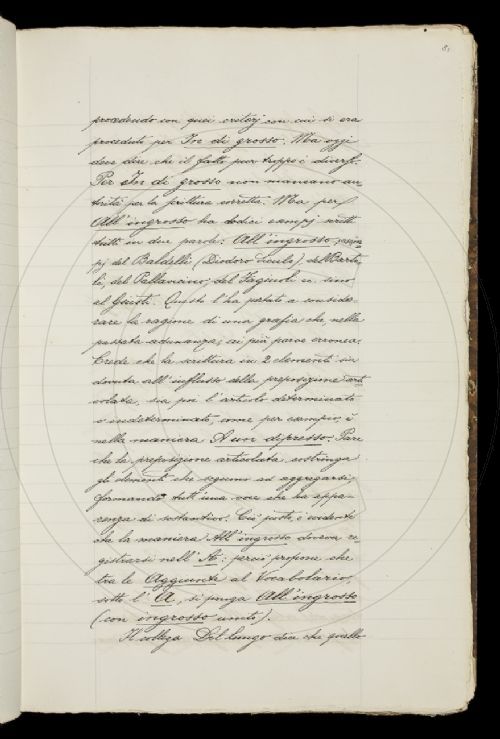 procedendo con quei criterj con cui si era
proceduti per In di grosso. Ma oggi
deve dire che il fatto pur troppo è diverso.
Per In di grosso non mancano au
torità per la scrittura corretta. Ma per
All'ingrosso ha dodici esempj scritti
tutti in due parole: All'ingrosso, esem
pj del Baldelli (Diodoro Siculo), del Martel
li, del Pallavicino, del Fagiuoli ec. sino
al Giusti. Questo l'ha portato a conside-
rare la ragione di una grafia che, nella
passata adunanza, ai più parve erronea.
Crede che la scrittura in 2 elementi sia
dovuta all'influsso della preposizione arti
colata, sia poi l'articolo determinato
o indeterminato, come per esempio, è
nella maniera A un dipresso. Pare
che la preposizione articolata costringa
gli elementi che seguono ad aggregarsi,
formando tutti una voce che ha appa-
renza di sostantivo. Ciò posto, è evidente
che la maniera All'ingrosso doveva re-
gistrarsi nell'A: perciò propone che
tra le Aggiunte al Vocabolario,
sotto l'A, si ponga All'ingrosso
(con ingrosso unito).
Il collega Del Lungo dice che quello